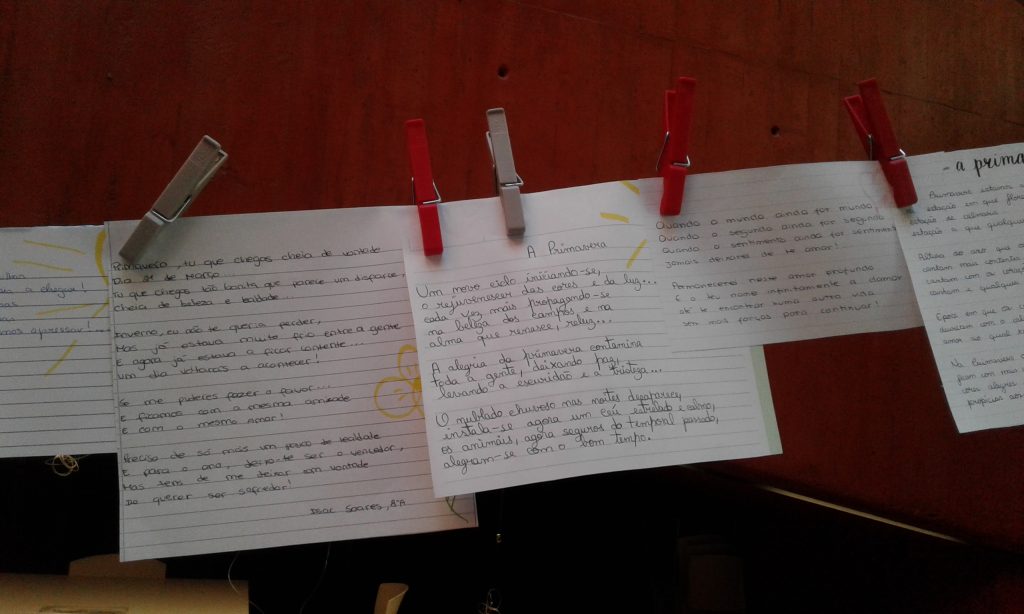 a chegar!
mos apressar!
Primavera, tu que chegas cheia de vontade
Dia 21 de Março...
Tu que chegas tão bonita que parece um disparate,
Cheia de beleza e lealdade...
Inverno, eu não te queria perder,
Mas já estava muito frio entre a gente
E agora já estava a ficar contente...
Um dia voltamos a acontecer!
Se me puderes fazer o favor...
E ficamos com a mesma amizade
E com o mesmo Amor!
Preciso de só mais um pouco de lealdade
E para o ano, deixo-te ser o vencedor,
Mas tens de me deixar com vontade
De querer ser sofredor!
Isac Soares, 8ºA
A Primavera
Um novo ciclo iniciando-se,
o rejuvenescer das cores e da luz...
cada vez mais propagando-se
na beleza dos campos, e na
alma que renasce, reluz...
A alegria da primavera contamina
toda a gente, deixando paz,
levando a escuridão e a tristeza...
O nublado chuvoso nas noites desaparece,
instala-se agora um céu estrelado e calmo,
os animais, agora seguros do temporal passado,
alegram-se com o bom tempo.
Quando o mundo ainda for mundo,
Quando o segundo ainda for segundo
Quando o sentimento ainda for sentiment
Jamais deixarei de te amar!
Permanecerei neste amor profundo
E o teu nome infinitamente a clamar
Se te encontrar numa outra vida
Sem mais forças para continuar!
- a prima
estação em que flore
estação a que qualquer
cantam mais contentes
cantam com a
cantam e qualquer
Época em que as
com o
amor se qual
Na Primavera
ficam com mais